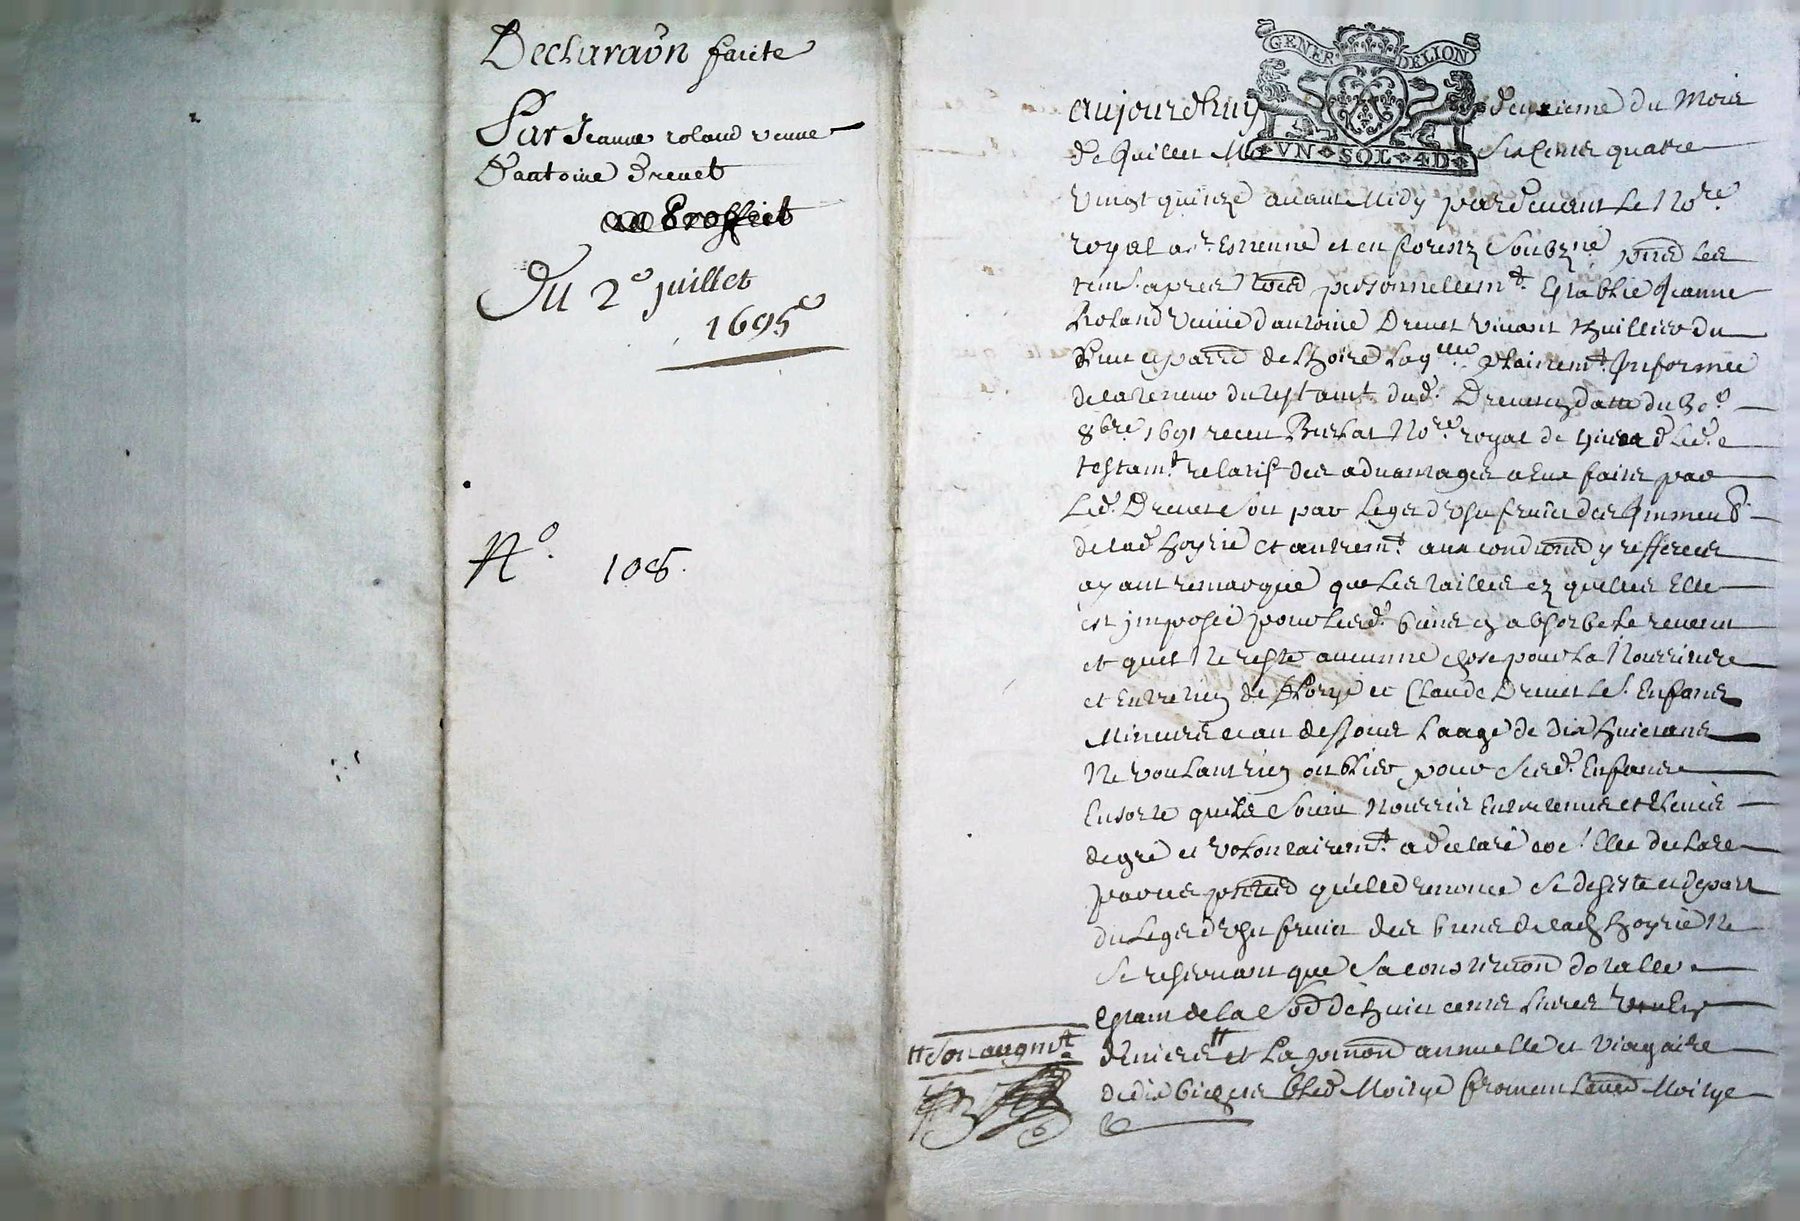 Declaraõn faicte
Par Jeanne roland veuve
D'antoine Drevet
au Proffict
Du 2e juillet
1695
N.o 108.
GENER DELION
VN SOL 4D
aujourdhuy deuxieme du Mois
de Juillet Mil Six Cents quatre
vingt quinze avant Midy pardevant Le No.re
royal a St Estienne et en forestz Soubzné les
apres personnellemt. Establie Jeanne
Roland veuve d'antoine Drevet vivant thuillier du
de Laq.lle Informée
de la teneur du testamt. dud. Drevet en datte du 30.e
8bre. 1691 receu No.re royal de Led.
testamt. relatif des advantages a Elle faits par
Led. Drevet Soit par Legat d'usufruict des Immeub.
de lad. hoyrie et autremt. aux conditions y
ayant remarqué que Les tailles ez quelles Elle
est jmposée pour Lesd. biens en absorbe Le revenu
et quil Ne reste aucunne chose pour La Nourriture
et Entretien de et Claude Drevet Les Enfants
Mineurs et au dessous Laage de dix huict ans
Ne voulant rien oublier pour Sesd. Enfants
Ensorte quils Soint Nourris Entretenus et Elevés
de gré et volontairemt. a declaré coe Elle declare
par ces pntes quelle renonce Se desiste et depart
du Legat d'usufruict des biens de lad. hoyrie Ne
Se reservant que Sa constitution dotalle
Estant de la de huict cents Livres
deniers # et La annuelle et viagaire
de dix bled Moitye froment Moitye
# Son augmt.